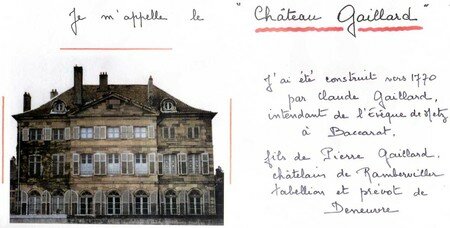 Je m'appelle le "Château Gaillard"
J'ai été construit vers 1770
par Claude Gaillard,
intendant de l'Évêque de Metz
à Baccarat,
fils de Pierre Gaillard,
châtelain de Ramberviller
tabellion et prévot de
Deneuvre